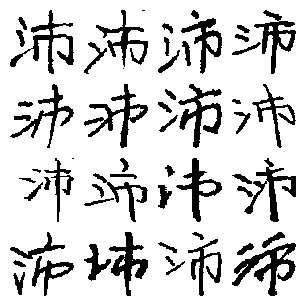 沛沛沛沛
沛沛沛沛
沛沛沛沛
沛沛沛沛